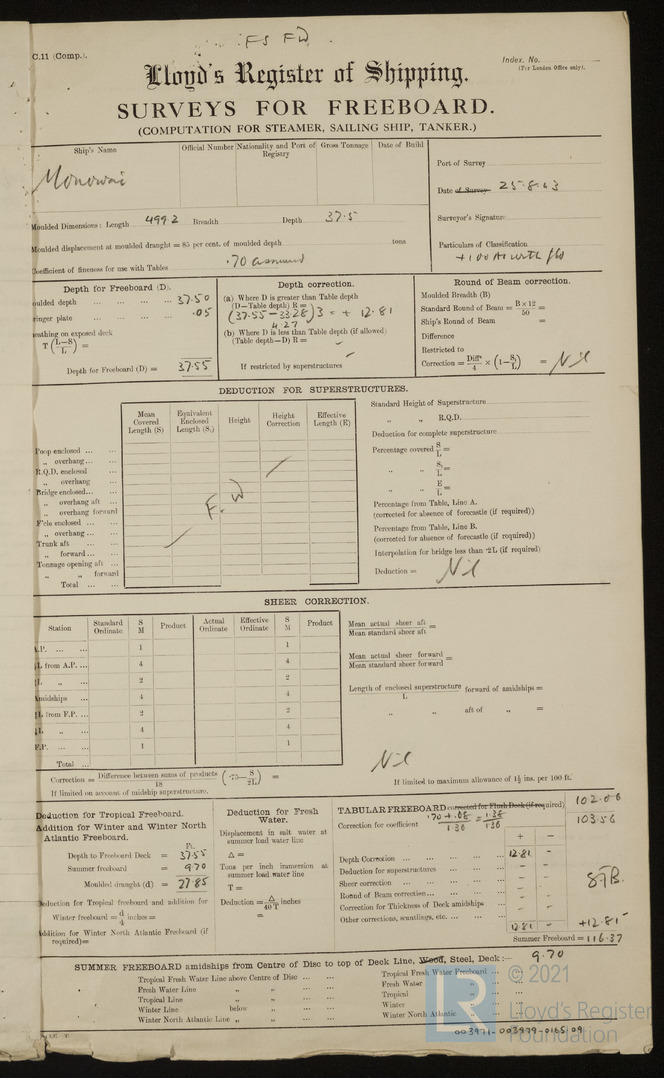 FS FW
C.11 (Comp.).
Index. No.
(For London Office only).
Lloyd's Register of Shipping.
SURVEYS FOR FREEBOARD.
(COMPUTATION FOR STEAMER, SAILING SHIP, TANKER.)
Ship's Name Official Number Nationality and Port of Registry Gross Tonnage Date of Build
Monowai
Port of Survey
Date of Survey 25.8.43
Surveyor's Signature
Particulars of Classification
+100 A1 with fbd
Moulded Dimensions: Length 499.2 Breadth Depth 37.5
Moulded displacement at moulded draught = 85 per cent. of moulded depth tons
Coefficient of fineness for use with Tables .70 assumed
Depth for Freeboard (D).
oulded depth ... ... ... ... 37.50
ringer plate ... ... ... ... .05
eathing on exposed deck
T (L-S/L) =
Depth for Freeboard (D) = 37.55
Depth correction.
(a) Where D is greater than Table depth
(D-Table depth) R =
(37.55 - 33.28) 3 = + 12.81
4.27
(b) Where D is less than Table depth (if allowed)
(Table depth-D) R =
If restricted by superstructures
Round of Beam correction.
Moulded Breadth (B)
Standard Round of Beam = B × 12/50 =
Ship's Round of Beam =
Difference
Restricted to
Correction = Diffce/4 × (1-S₁/L) = Nil
DEDUCTION FOR SUPERSTRUCTURES.
Mean Covered Length (S) Equivalent Enclosed Length (S₁) Height Height Correction Effective Length (E)
Poop enclosed ... ...
„ overhang ... ...
R.Q.D. enclosed
„ overhang
Bridge enclosed... ...
„ overhang aft ...
„ overhang forward
F'cle enclosed ... ...
„ overhang ... ...
Trunk aft ... ...
„ forward ... ...
Tonnage opening aft ...
„ „ forward
Total ... ...
F.W
Standard Height of Superstructure
„ „ R.Q.D.
Deduction for complete superstructure
Percentage covered S/L =
„ „ S₁/L =
„ „ E/L =
Percentage from Table, Line A.
(corrected for absence of forecastle (if required))
Percentage from Table, Line B.
(corrected for absence of forecastle (if required))
Interpolation for bridge less than ·2L (if required)
Deduction = Nil
SHEER CORRECTION.
Station Standard Ordinate S M Product Actual Ordinate Effective Ordinate S M Product
A.P. ... ... 1 1
L from A.P. ... 4 4
L „ ... 2 2
Amidships ... 4 4
L from F.P. ... 2 2
L „ ... 4 4
F.P. ... ... 1 1
Total ...
Mean actual sheer aft / Mean standard sheer aft =
Mean actual sheer forward / Mean standard sheer forward =
Length of enclosed superstructure / L forward of amidships =
„ „ aft of „ =
Nil
Correction = Difference between sums of products / 18 (·75- S/2L) =
If limited on account of midship superstructure.
If limited to maximum allowance of 1½ ins. per 100 ft.
Deduction for Tropical Freeboard.
Addition for Winter and Winter North Atlantic Freeboard.
Ft.
Depth to Freeboard Deck = 37.55
Summer freeboard = 9.70
Moulded draught (d) = 27.85
Deduction for Tropical freeboard and addition for
Winter freeboard = d/4 inches =
Addition for Winter North Atlantic Freeboard (if required)=
Deduction for Fresh Water.
Displacement in salt water at summer load water line
Δ =
Tons per inch immersion at summer load water line
T =
Deduction = Δ/40T inches
=
TABULAR FREEBOARD corrected for Flush Deck (if required) 102.06
Correction for coefficient .70 + .68 / 1.36 = 1.38 / 1.36 103.56
+ -
Depth Correction ... ... ... ... 12.81 -
Deduction for superstructures ... ... -
Sheer correction ... ... ... ...
Round of Beam correction... ... ...
Correction for Thickness of Deck amidships
Other corrections, scantlings, etc. ... ...
12.81 - +12.81
Summer Freeboard = 116.37
9.70
SUMMER FREEBOARD amidships from Centre of Disc to top of Deck Line, Wood, Steel, Deck:—
Tropical Fresh Water Line above Centre of Disc ... ...
Fresh Water Line „ „ ... ...
Tropical Line „ „ ... ...
Winter Line below „ ... ...
Winter North Atlantic Line „ „ ... ...
Tropical Fresh Water Freeboard ...
Fresh Water „ ...
Tropical „ ...
Winter „ ...
Winter North Atlantic „ ...
LR
© 2021
Lloyd's Register
Foundation
003971-003979-0165 09